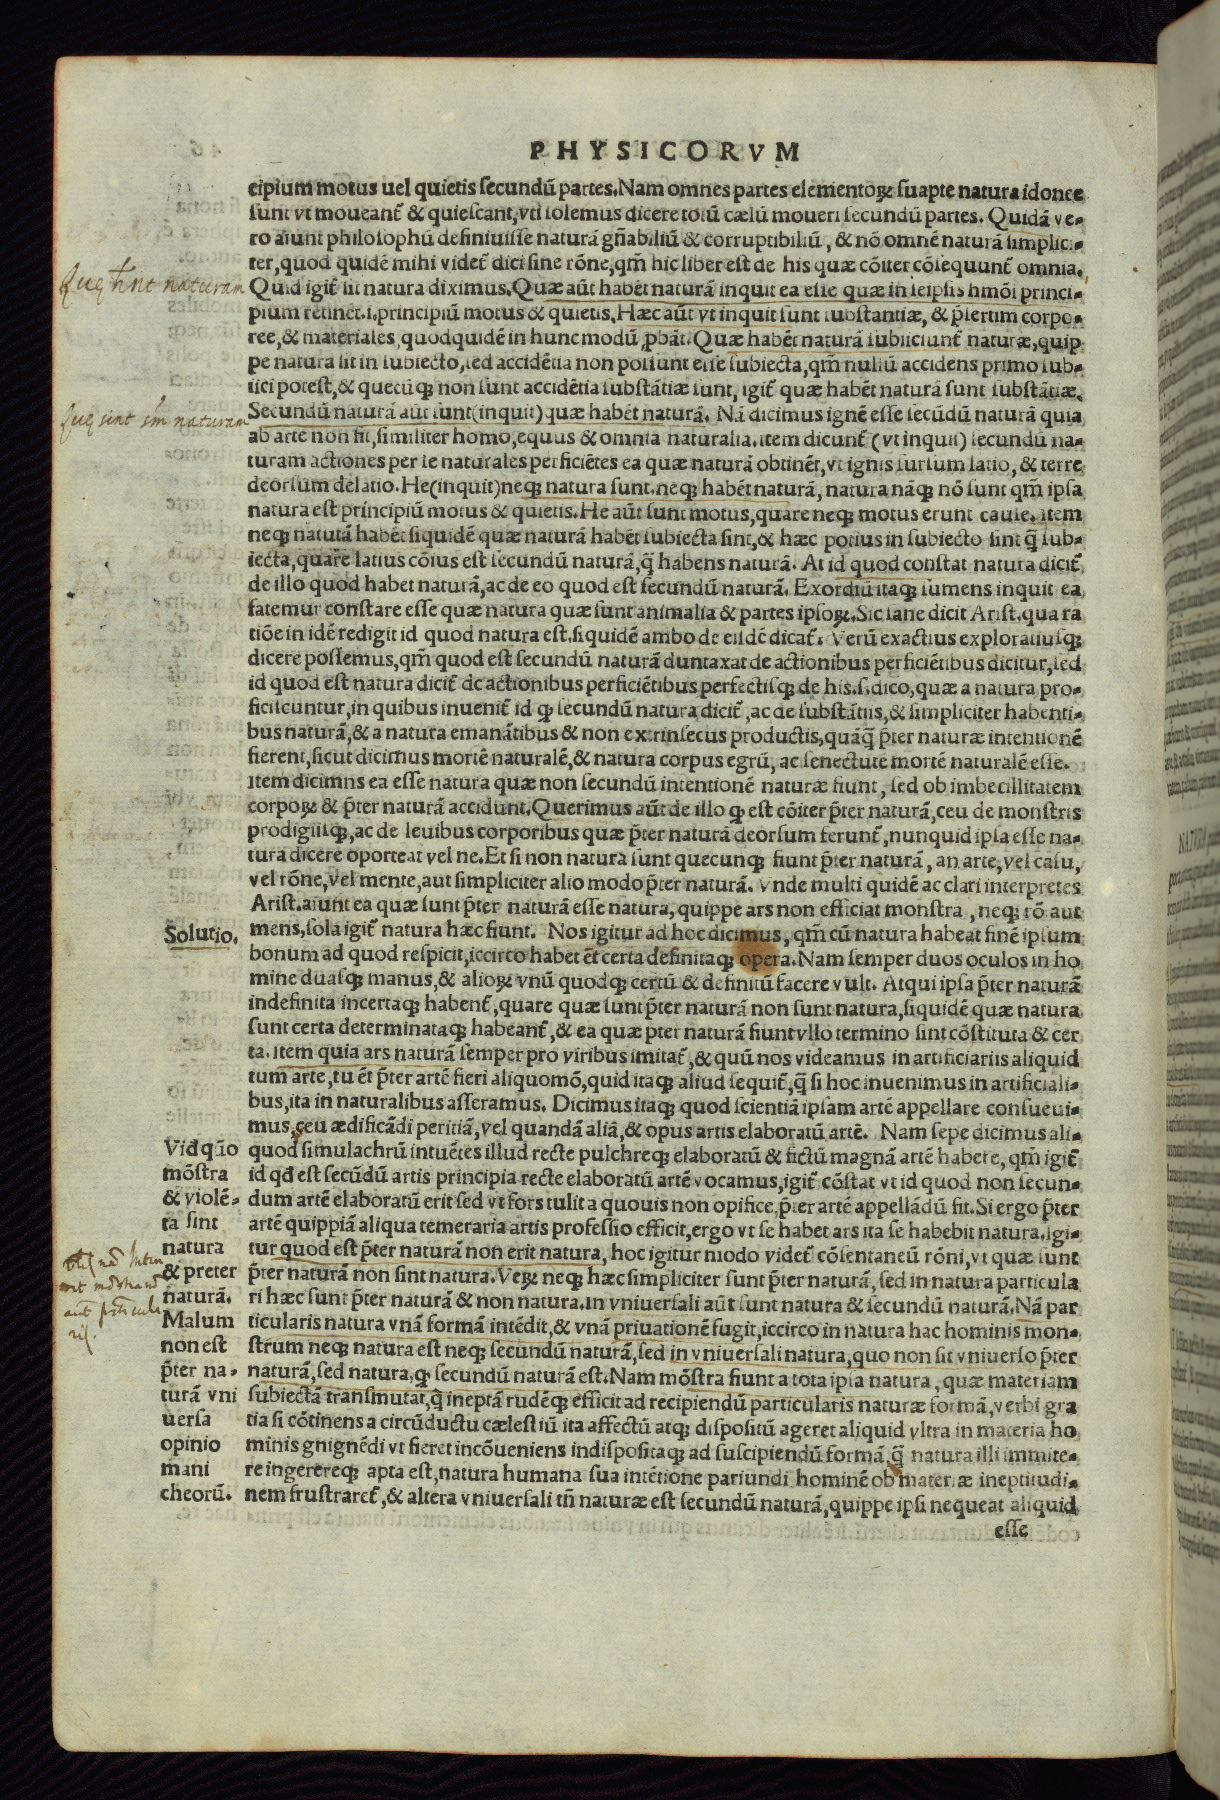 PHYSICORVM
cipium motus uel quietis secundũ partes. Nam omnes partes elementoꝝ suapte natura idonee
sunt vt moueant̃ & quiescant, vti solemus dicere totũ cælũ moueri secundũ partes. Quidã ve-
ro aiunt philosophũ definiuisse naturã gñabiliũ & corruptibiliũ, & nõ omnẽ naturã simplici-
ter, quod quidẽ mihi videt̃ dici sine rõne, qm̃ hic liber est de his quæ cõiter cõsequunt̃ omnia.
Quę hñt naturam
Quid igit̃ sit natura diximus. Quæ aũt habẽt naturã inquit ea esse quæ in seipsis hmõi princi-
pium retinẽt. i. principiũ motus & quietis. Hæc aũt vt inquit sunt substantiæ, & p̃sertim corpo-
ree, & materiales, quodquidẽ in hunc modũ ꝓbãt. Quæ habẽt naturã subiiciunt̃ naturæ, quip
pe natura sit in subiecto, sed accidẽtia non possunt esse subiecta, qm̃ nullũ accidens primo sub-
iici potest, & quecũqꝫ non sunt accidẽtia substãtiæ sunt, igit̃ quæ habẽt naturã sunt substãtiæ.
Quę sint sm̃ naturam
Secundũ naturã aũt sunt (inquit) quæ habẽt naturã. Nã dicimus ignẽ esse secũdũ naturã quia
ab arte non fit, similiter homo, equus & omnia naturalia. item dicunt̃ (vt inquit) secundũ na-
turam actiones per se naturales perficiẽtes ea quæ naturã obtinẽt, vt ignis sursum latio, & terre
deorsum delatio. He (inquit) neqꝫ natura sunt. neqꝫ habẽt naturã, natura nãqꝫ nõ sunt qm̃ ipsa
natura est principiũ motus & quietis. He aũt sunt motus, quare neqꝫ motus erunt cause. item
neqꝫ naturã habẽt siquidẽ quæ naturã habẽt subiecta sint, & hæc potius in subiecto sint q̃ sub-
iecta, quare latius cõius est secundũ naturã, q̃ habens naturã. At id quod constat natura dicit̃
de illo quod habet naturã, ac de eo quod est secundũ naturã. Exordiũ itaqꝫ sumens inquit ea
fatemur constare esse quæ natura quæ sunt animalia & partes ipsoꝝ. Sic sane dicit Arist. qua ra
tiõe in idẽ redigit id quod natura est. siquidẽ ambo de eisdẽ dicat̃. Verũ exactius exploratiusqꝫ
dicere possemus, qm̃ quod est secundũ naturã duntaxat de actionibus perficiẽtibus dicitur, sed
id quod est natura dicit̃ de actionibus perficiẽtibus perfectisqꝫ de his. s. dico, quæ a natura pro-
ficiscuntur, in quibus inuenit̃ id qꝫ secundũ natura dicit̃, ac de substãtiis, & simpliciter habenti-
bus naturã, & a natura emanãtibus & non extrinsecus productis, quãq̃ p̃ter naturæ intentionẽ
fierent, sicut dicimus mortẽ naturalẽ, & natura corpus egrũ, ac senectutẽ mortẽ naturalẽ esse.
Item dicimns ea esse natura quæ non secundũ intentionẽ naturæ fiunt, sed ob imbecillitatem
corpoꝝ & p̃ter naturã accidunt. Querimus aũt de illo qꝫ est cõiter p̃ter naturã, ceu de monstris
prodigiisqꝫ, ac de leuibus corporibus quæ p̃ter naturã deorsum ferunt̃, nunquid ipsa esse na-
tura dicere oporteat vel ne. Et si non natura sunt quecunqꝫ fiunt p̃ter naturã, an arte, vel casu,
vel rõne, vel mente, aut simpliciter alio modo p̃ter naturã. Vnde multi quidẽ ac clari interpretes
Arist. aiunt ea quæ sunt p̃ter naturã esse natura, quippe ars non efficiat monstra, neqꝫ rõ aut
Solutio.
mens, sola igit̃ natura hæc fiunt. Nos igitur ad hoc dicimus, qm̃ cũ natura habeat finẽ ipsum
bonum ad quod respicit, iccirco habet ẽt certa definitaqꝫ opera. Nam semper duos oculos in ho
mine duasqꝫ manus, & alioꝝ vnũ quodqꝫ certũ & definitũ facere vult. Atqui ipsa p̃ter naturã
indefinita incertaqꝫ habent̃, quare quæ sunt p̃ter naturã non sunt natura, siquidẽ quæ natura
sunt certa determinataqꝫ habeant̃, & ea quæ pter naturã fiunt vllo termino sint cõstituta & cer
ta. item quia ars naturã semper pro viribus imitat̃, & quũ nos videamus in artificiariis aliquid
tum arte, tũ ẽt p̃ter artẽ fieri aliquomõ, quid itaqꝫ aliud sequit̃, q̃ si hoc inuenimus in artificiali-
bus, ita in naturalibus asseramus. Dicimus itaqꝫ quod scientiã ipsam artẽ appellare consueui-
mus, ceu ædificãdi peritiã, vel quandã aliã, & opus artis elaboratũ artẽ. Nam sepe dicimus ali-
quod simulachrũ intuẽtes illud recte pulchreqꝫ elaboratũ & fictũ magnã artẽ habere, qm̃ igit̃
id qđ est secũdũ artis principia recte elaboratũ artẽ vocamus, igit̃ cõstat vt id quod non secun-
dum artẽ elaboratũ erit sed vt fors tulit a quouis non opifice, p̃ter artẽ appellãdũ sit. Si ergo p̃ter
artẽ quippiã aliqua temeraria artis professio efficit, ergo vt se habet ars ita se habebit natura. Igi-
tur quod est p̃ter naturã non erit natura, hoc igitur modo videt̃ cõsentaneũ rõni, vt quæ sunt
p̃ter naturã non sint natura. Veꝝ neqꝫ hæc simpliciter sunt p̃ter naturã, sed in natura particula
ri hæc sunt p̃ter naturã & non natura. in vniuersali aũt sunt natura & secundũ naturã. Nã par
ticularis natura vnã formã intẽdit, & vnã priuationẽ fugit, iccirco in natura hac hominis mon-
strum neqꝫ natura est neqꝫ secundũ naturã, sed in vniuersali natura, quo non sit vniuerso p̃ter
naturã, sed natura, qꝫ secundũ naturã est. Nam mõstra fiunt a tota ipsa natura, quæ materiam
subiectã transmutat, q̃ ineptã rudẽqꝫ efficit ad recipiendũ particularis naturæ formã, verbi gra
tia si cõtinens a circũductu cælestiũ ita affectũ atqꝫ dispositũ ageret aliquid vltra in materia ho
minis gnignẽdi vt fieret incõueniens indispositaqꝫ ad suscipiendũ formã, q̃ natura illi immite-
re ingerereqꝫ apta est, natura humana sua intẽtione pariundi hominẽ ob materiæ ineptitudi-
nem frustraret̃, & altera vniuersali tñ naturæ est secundũ naturã, quippe ipsi nequeat aliquid
esse
Vid qũo
mõstra
& violẽ-
ta sint
natura
& preter
naturã.
Malum
non est
p̃ter na-
turã vni
uersa
opinio
mani
cheorũ.